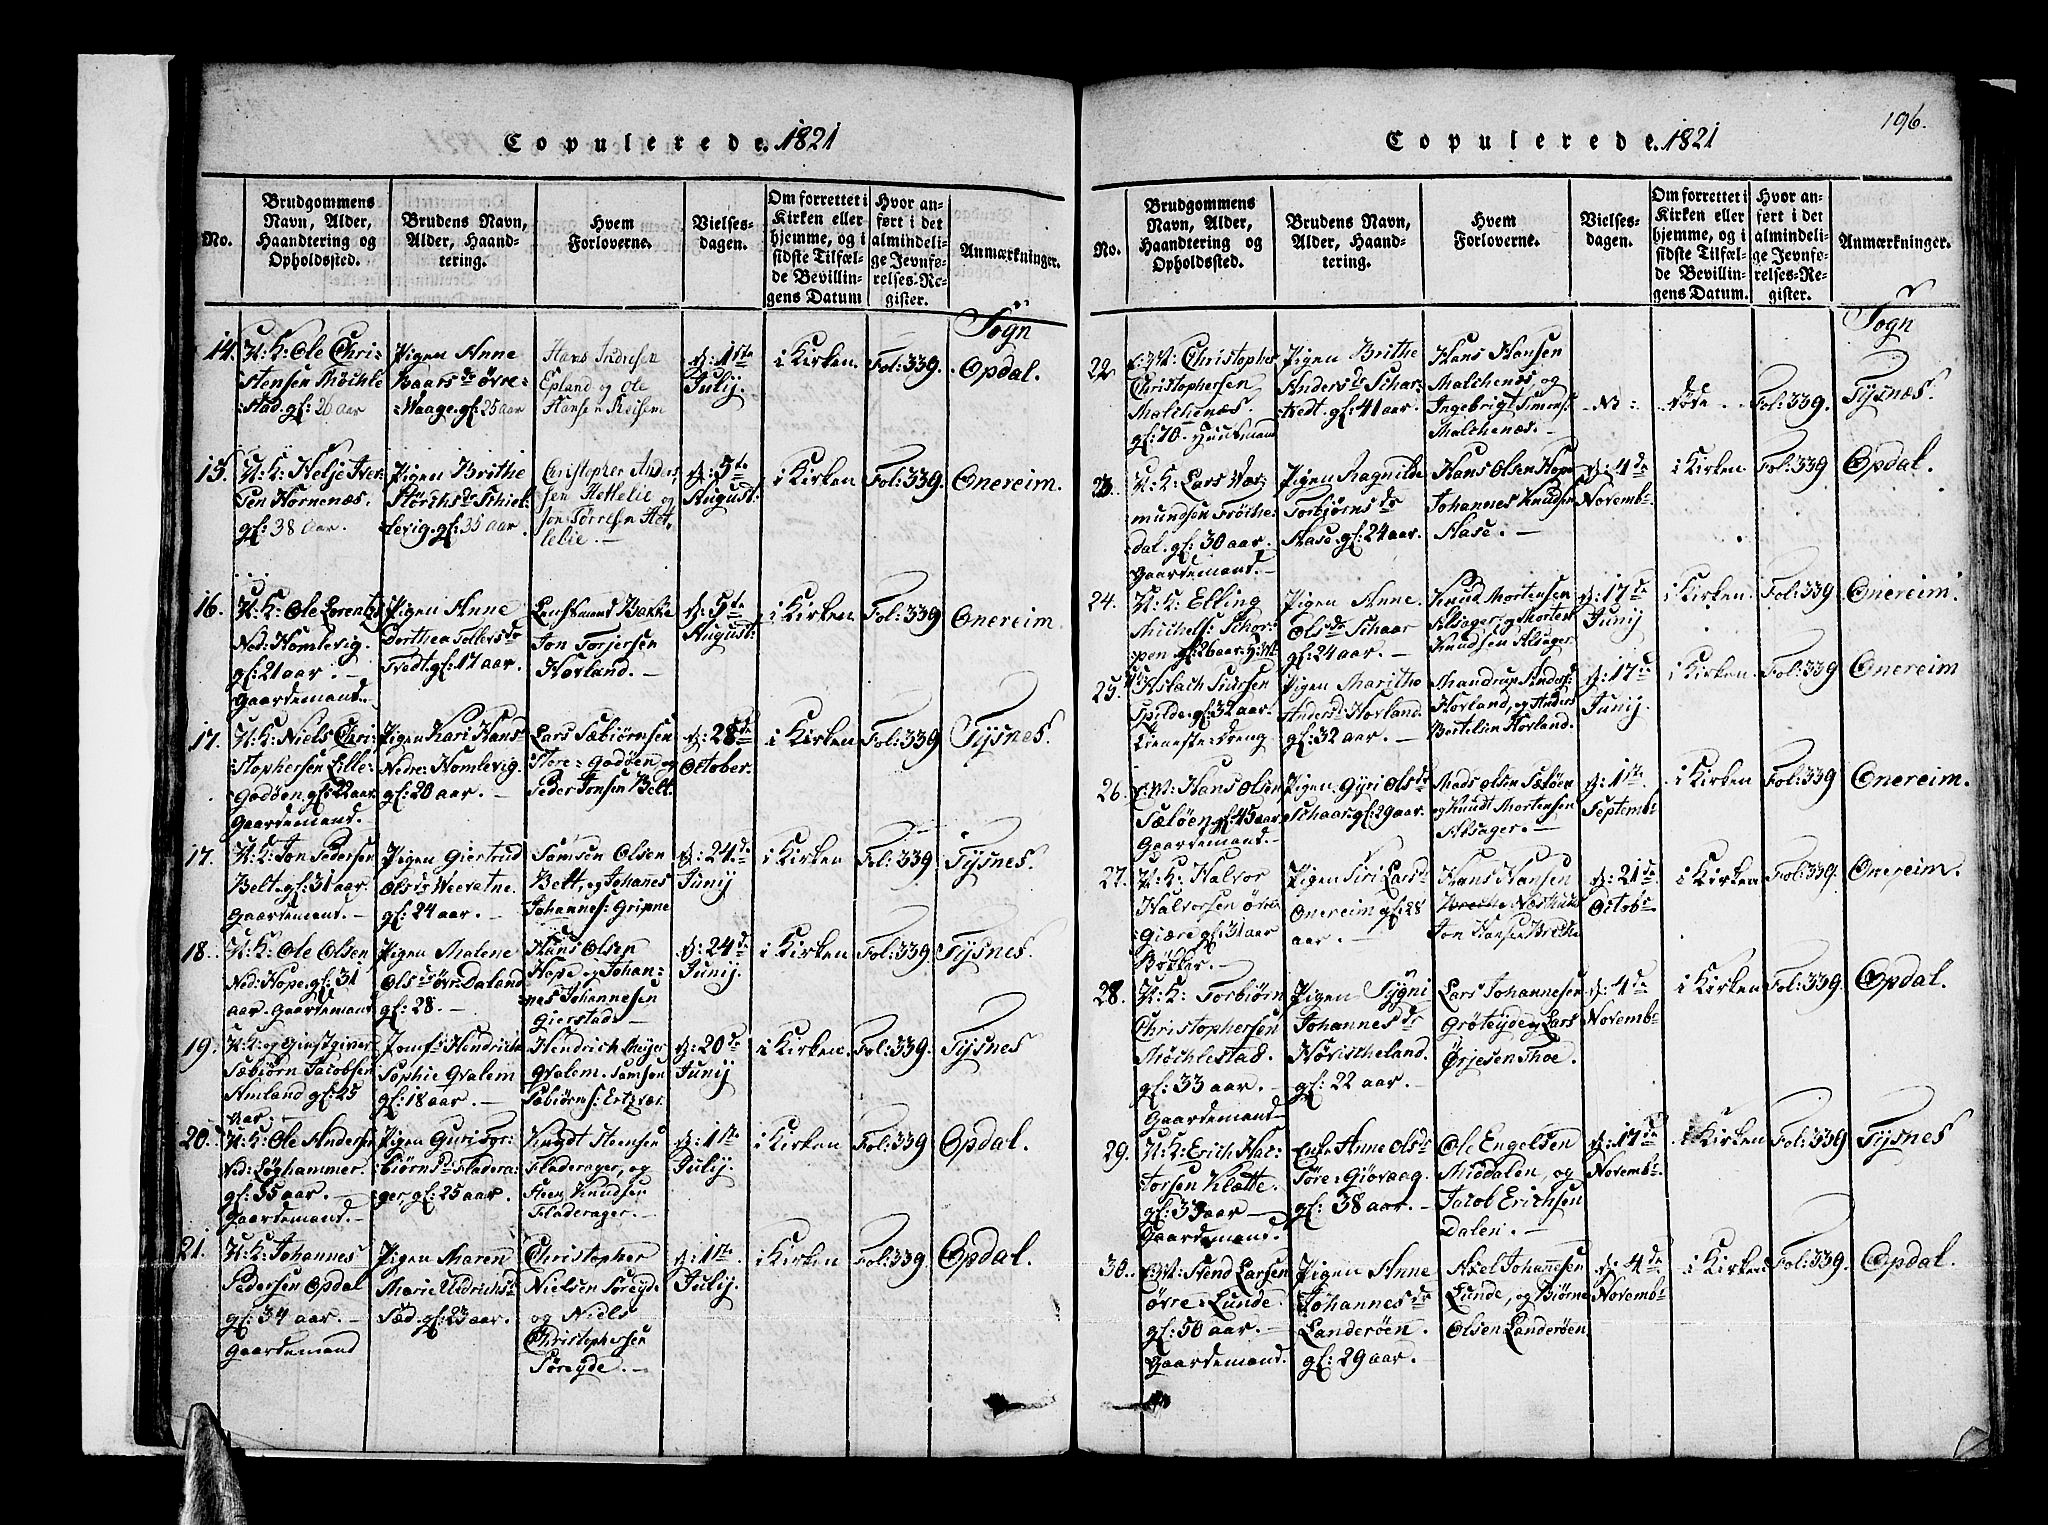 Copulerede. 1821
No.
Brudgommens
Navn, Alder,
Haandtering og
Opholdssted.
Brudens Navn,
Alder, Haand-
tering.
Hvem
Forloverne.
Vielses-
dagen.
Om forrettet i
Kirken eller
hjemme, og i
sidste Tilfæl-
de Bevillin-
gens Datum
Hvor an-
ført i det
almindeli-
ge Jevnfø-
relses-Re-
gister.
Anmærkninger.
Sogn
14.
U: K: Ole Chri-
stensen Möchle
stad. gl: 26 aar
Pigen Anne
Baarsdr Øvre=
=Waage. gl: 25 aar
Hans Andresen
Epland og Ole
Hansen Reisem
d: 1ste
Julij.
i Kirken.
Fol: 339.
Opdal.
15.
U: K: Helje Iver
sen Hornenæs.
gl: 38 aar.
Pigen Brithe
gl: 35 aar.
Christopher Anders
sen Hettelie og
Jon Törresen Het
lelie. —
d: 5te
August:
i Kirken
Fol: 339.
Onereim.
16.
U: K: Ole Lorentz
Ned: Homlevig.
gl: 21 aar. —
Gaardemand.
Pigen Anne
Dorthea Tollersdr
Tvedt. gl: 17 aar.
Lensmand Bakke
Jon Torjersen
Hovland. —
d: 5te
August:
i Kirken
Fol: 339
Onereim.
17.
U: K: Niels Chri
stophersen Lille=
Godöen. gl: 22 aar.
Gaardemand.
Pigen Kari Hans
Nedre: Homlevig.
gl: 20 aar. —
Lars Sæbiörnsen
Store=Godöen og
Peder Jonsen Belt.
d: 28de
October.
i Kirken
Fol: 339
Tysnes.
17.
U: K: Jon Pedersen
Belt. gl: 31 aar.
Gaardemand. —
Pigen Giertrud
Olsdr Weevatne.
gl: 24 aar. —
Samsen Olsen
Belt, og Johannes
Johannes: Gripne
d: 24de
Junij
i Kirken
Fol: 339.
Tysnes.
18.
U: K: Ole Olsen
Ned: Hope. gl: 31
aar. Gaardemand
Pigen Malene
Olsdr övr: Daland
gl: 28. —
Hans Olsen
Hope og Johan=
nes Johannesen
Gierstad.
d: 24de
Junij.
i Kirken
Fol: 339.
Tysnes.
19.
U: K: og Giestgiver
Sæbiörn Jacobsen
Amland gl: 25
aar. —
Jomf: Hendrich
Sophie Qvalem
gl: 18 aar. —
Hendrich Meyer
Qvalem. Samson
Sæbiörns: Ertzvær
d: 20de
Junij
i Kirken.
Fol: 339.
Tysnes
20.
U: K: Ole Andersen
Ned: Löghammer.
gl: 35 aar. —
Gaardemand. —
Pigen Guri
Fladera=
ger, gl: 25 aar.
Knudt Steensen
Fladerager, og
Steen Knudsen
Fladerager. —
d: 1ste
Julij.
i Kirken
Fol: 339
Opdal.
21.
U: K: Johannes
Pedersen Opdal
gl: 34 aar. —
Gaardemand
Pigen Maren
Marie Uldrichsd
Sæd. gl: 23 aar.
Christopher
Nielsen Söreyde
og Niels
Christophersen
Söreyde. —
d: 1ste
Julij.
i Kirken
Fol: 339.
Opdal.
196.
Copulerede. 1821
No.
Brudgommens
Navn, Alder,
Haandtering og
Opholdssted.
Brudens Navn,
Alder, Haand-
tering.
Hvem
Forloverne.
Vielses-
dagen.
Om forrettet i
Kirken eller
hjemme, og i
sidste Tilfæl-
de Bevillin-
gens Datum.
Hvor an-
ført i det
almindeli-
ge Jevnfø-
relses-Re-
gister.
Anmærkninger.
Sogn
22
Christopher
Christophersen
Malchenæs.
gl: 70. Huusmand
Pigen Brithe
Andersdr Schar=
tvedt. gl: 41 aar.
Hans Hansen
Malchenæs, og
Ingebrigt Simons:
Malchenæs. —
döde.
Fol: 339.
Tysnæs.
23.
U: K: Lars Vær
mundsen Tröche
dal. gl: 30 aar.
Gaardemand. —
Pigen Ragnilde
Torbjörnsdr
Hase. gl: 24 aar.
Hans Olsen Hope
Johannes Knudsen
Hase. —
d: 4de
Novembr
i Kirken
Fol: 339
Opdal.
24.
U: K: Elling
Michels: Schor=
pen gl: 26 aar.
Pigen Anne
Olsdr Schaar
gl: 24 aar. —
Knud Mortensen
Alsager, og Morten
Knudsen Alsager.
d: 17de
Junij
i Kirken.
Fol: 339.
Onereim.
25.
Aslach Siursen
Spilde. gl: 32 aar.
tieneste: dreng
Pigen Marithe
Andersd: Hovland.
gl: 32 aar. —
Mandrup Anders:
Hovland, og Anders
Bertelsen Hovland.
d: 17de
Junij.
i Kirken
Fol: 339
Onereim
26.
Hans Olsen
Sælöen gl: 45 aar
Gaardemand. —
Pigen Gyri Olsdr
Schaar. gl: 29 aar.
Mads Olsen Sælöen
og Knudt Mortensen
Alsager. —
d: 1ste
Septembr
i Kirken
Fol: 339
Onereim.
27.
U: K: Halvor
Halvorsen övre
Giære gl: 31 aar
Bøkker. —
Pigen Siri Larsd
Onereim gl: 28
aar. —
Hans Hansen
Næshuus
Jon Hansen
d: 21de
Octobr
i Kirken
Fol: 339.
Onereim.
28.
U: K: Torbiörn
Christophersen
Möchlestad.
gl: 33 aar. —
Gaardemand
Pigen Sygni
Johannesdr
Hövischeland.
gl: 22 aar. —
Lars Johannesen
Gröteyde og Lars
Örjesen Thoe.
d: 4de
Novembr
i Kirken
Fol: 339
Opdal.
29.
U: K: Erich Hal=
torsen Klætte.
gl: 33 aar —
Gaardemand.
Enke Anne Olsdr
Töre: Giövaag.
gl: 38 aar. —
Ole Engelsen
Middalen, og
Jacob Erichsen
Dalen. —
d: 17de
Novembr
i Kirken
Fol: 339
Tysnes
30.
Larsen
övre=Lunde.
gl: 50 aar. —
Gaardemand.
Pigen Anne
Johannesdr
Landeröen.
gl: 29 aar. —
Axel Johannesen
Lunde, og Biörne
Olsen Landeröen
d: 4de
Novembr
i Kirken
Fol: 339.
Opdal.